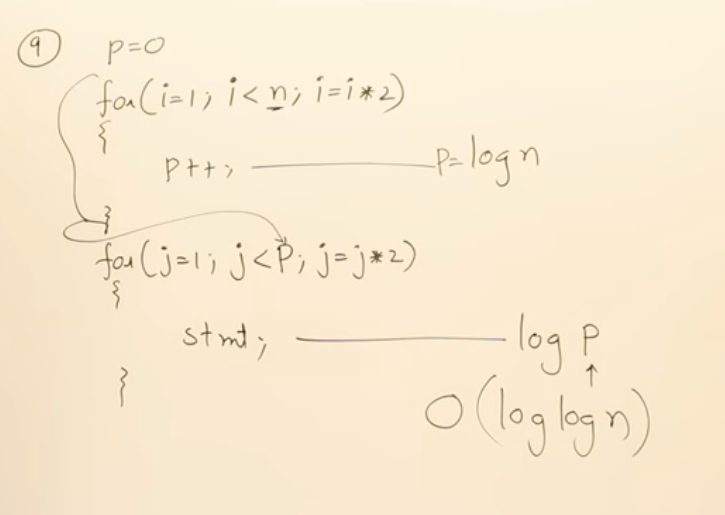 9 p=0
for(i=1; i<n; i=i*2)
{
p++; p=logn
}
for(j=1; j<P; j=j*2)
{
stmt; log P
↑
}
O(loglogn)